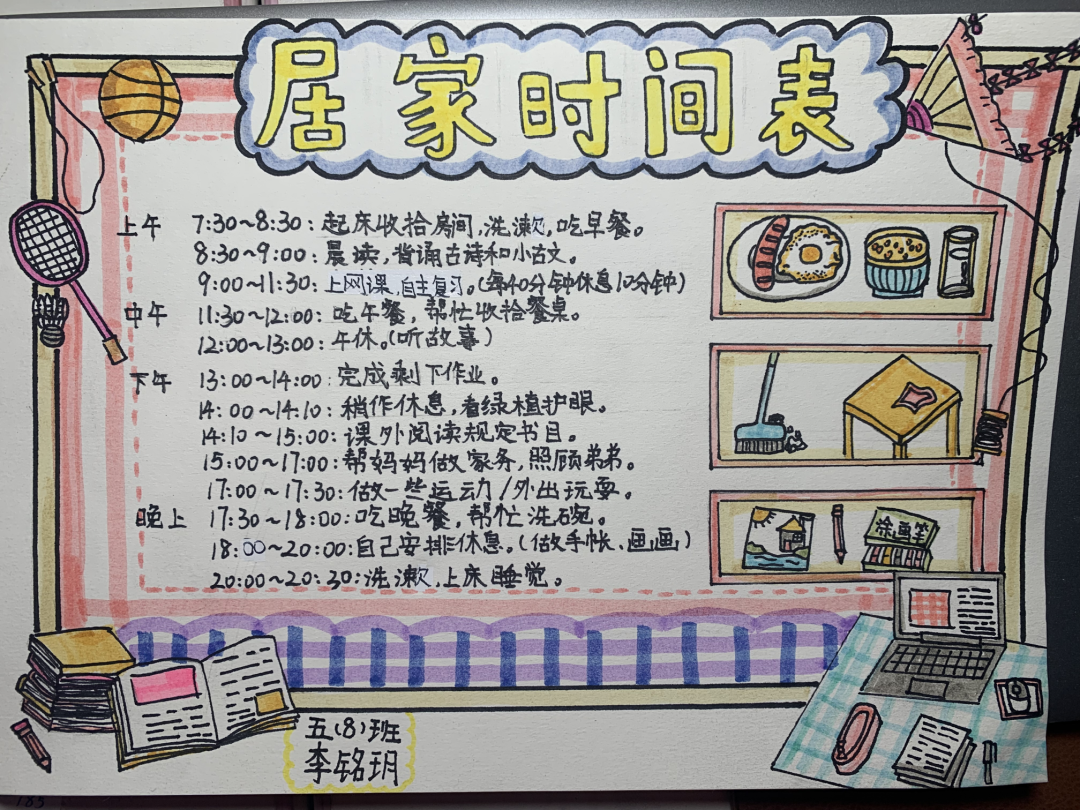 居家时间表
上午 7:30~8:30:起床收拾房间,洗漱,吃早餐。
8:30~9:00:晨读,背诵古诗和小古文。
9:00~11:30:上网课,自主复习。(每40分钟休息10分钟)
中午 11:30~12:00:吃午餐,帮忙收拾餐桌。
12:00~13:00:午休。(听故事)
下午 13:00~14:00:完成剩下作业。
14:00~14:10:稍作休息,看绿植护眼。
14:10~15:00:课外阅读规定书目。
15:00~17:00:帮妈妈做家务,照顾弟弟。
17:00~17:30:做一些运动/外出玩耍。
晚上 17:30~18:00:吃晚餐,帮忙洗碗。
18:00~20:00:自己安排休息。(做手帐、画画)
20:00~20:30:洗漱,上床睡觉。
涂画笔
五(8)班
李铭玥
185